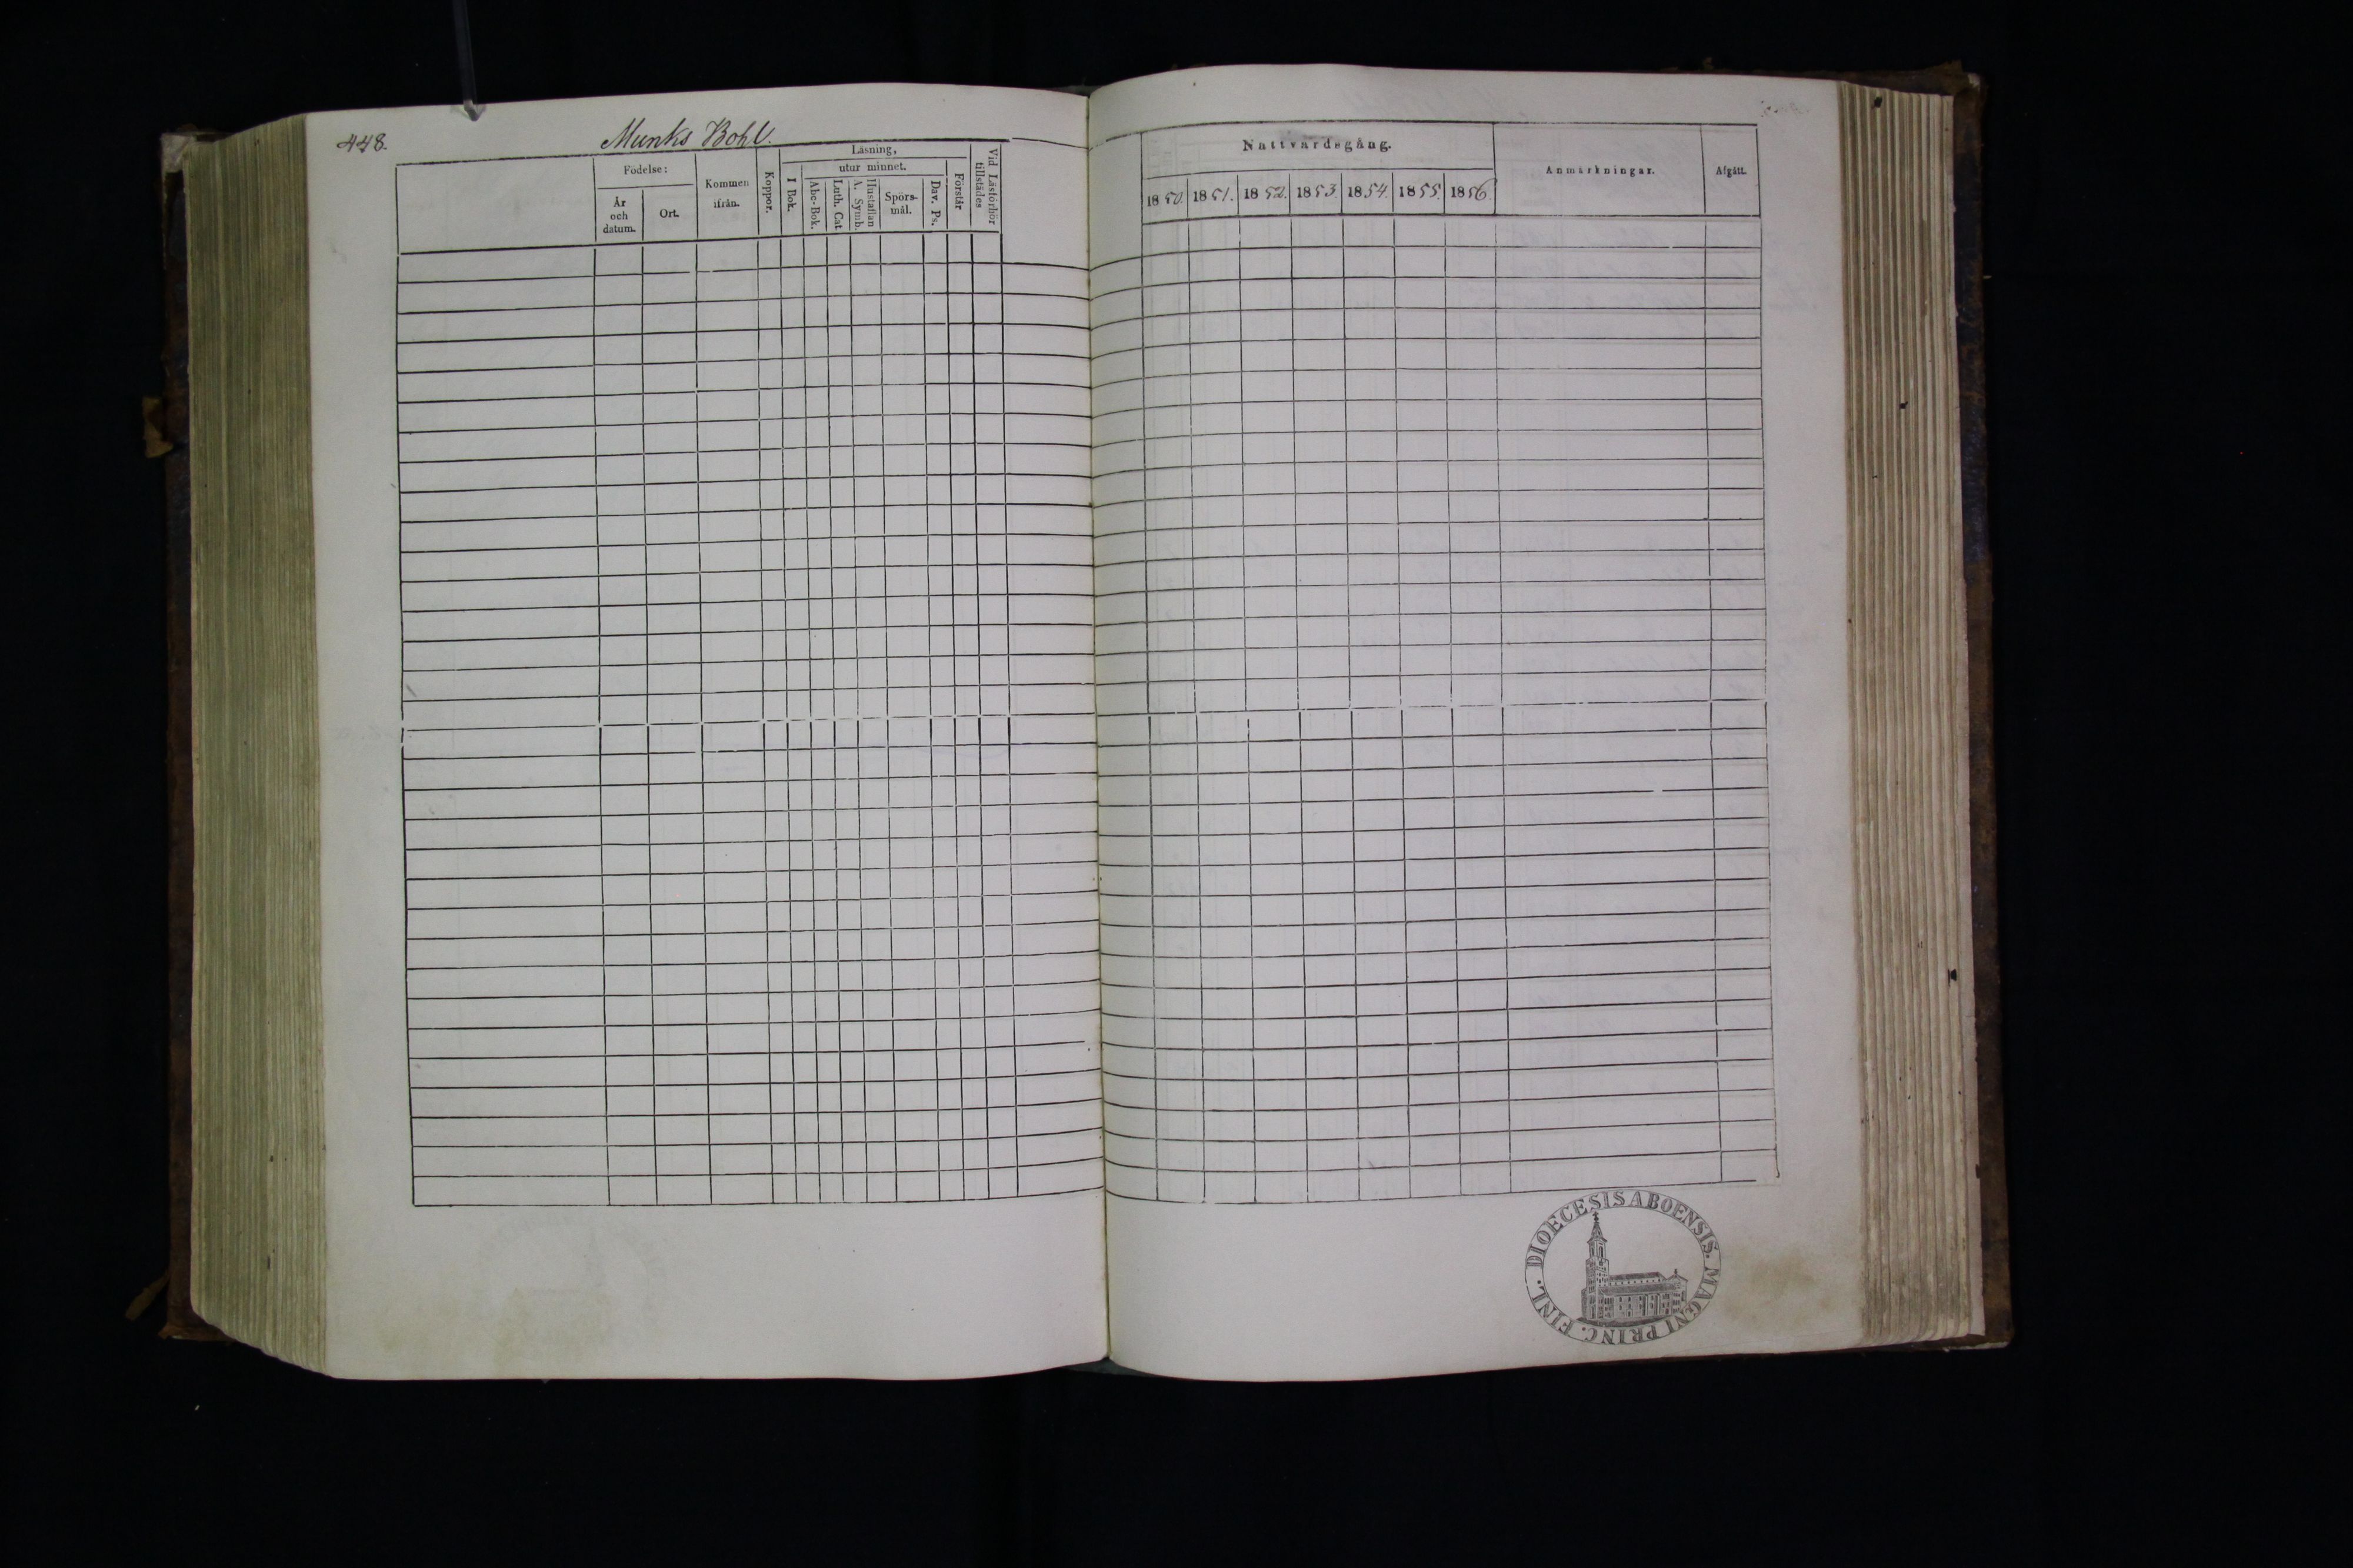 448.
Munks Bohl.
Födelse:
År och datum.
Ort.
Kommen ifrån.
Koppor.
Läsning,
I Bok.
utur minnet.
Abc-Bok.
Luth. Cat
A. Symb.
Hustaflan
Spörs-mål.
Dav. Ps.
Förstår
Vid Läsförhör tillstädes
Nattvardsgång.
1850. 1851. 1852. 1853. 1854. 1855. 1856.
Anmärkningar.
Afgått.
DIOECESIS ABOENSIS. MAGNI PRINC. FINL.